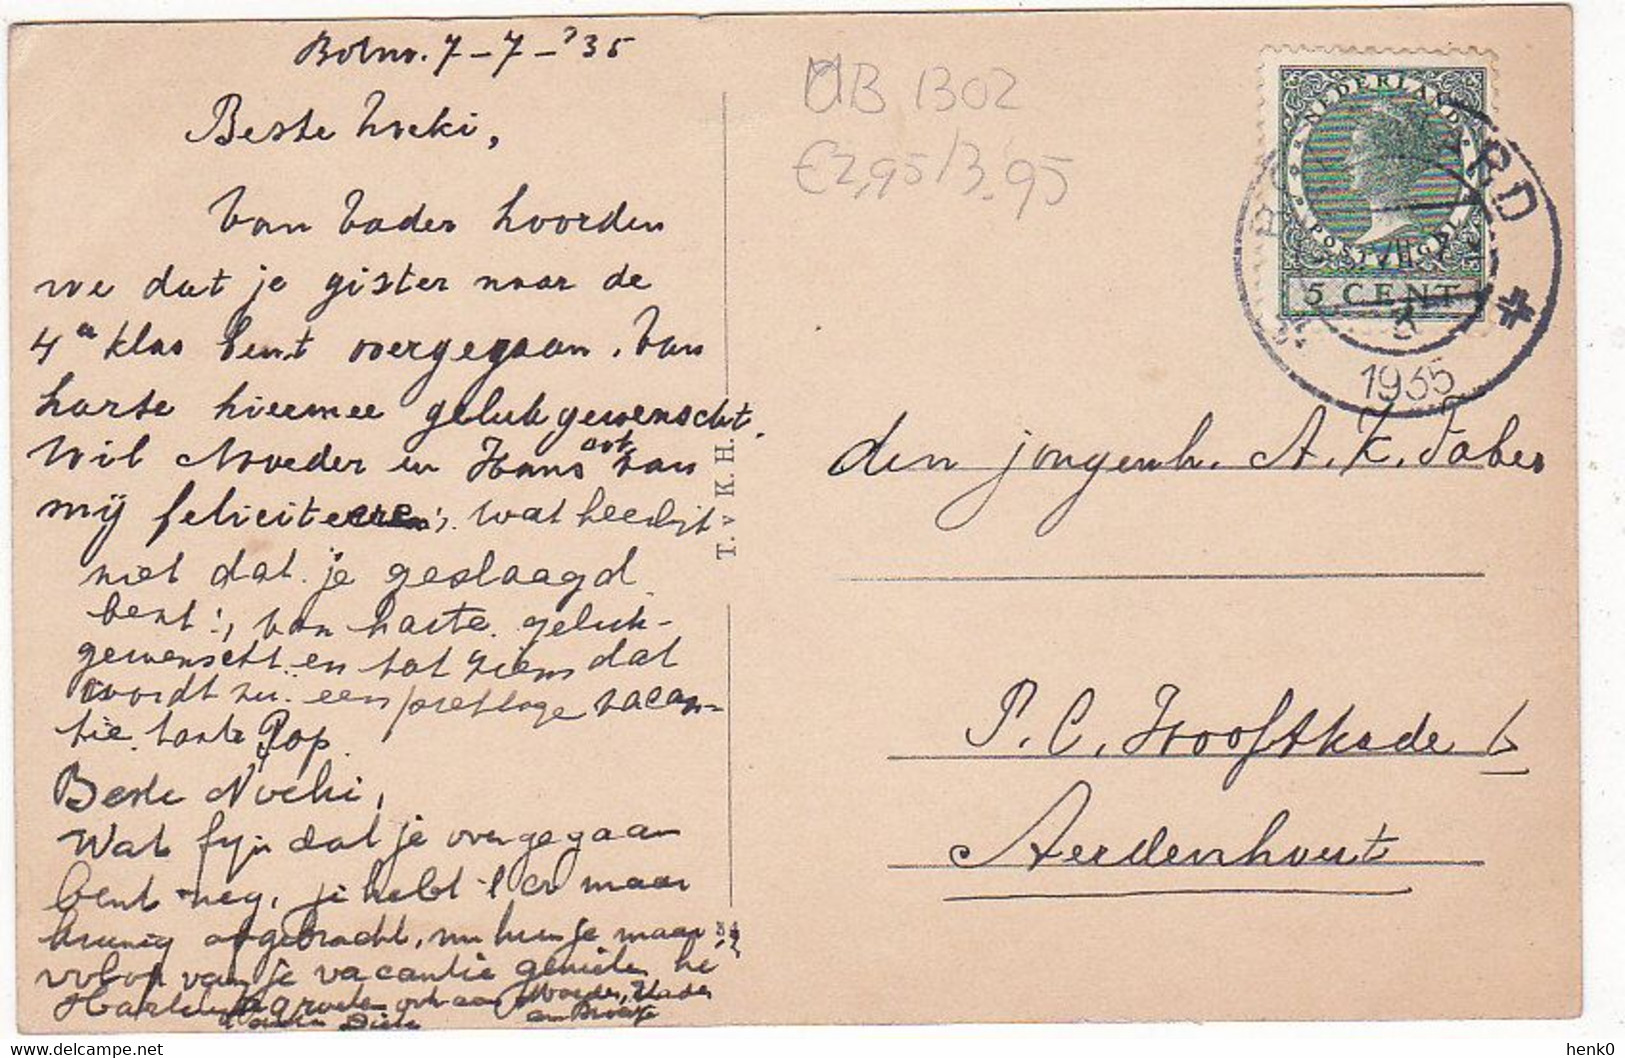 Bolsw. 7-7-'35
Beste Noeki,
Van Vader hoorden
we dat je gister naar de
4de klas bent overgegaan. Van
harte hiermee gelukgewenscht.
Wil Moeder en Hans ook van
mij feliciteeren; wat heerlijk
niet dat je geslaagd
bent!, van harte geluk-
gewenscht en tot ziens dat
wordt nu een prettige vacan-
tie. tante Pop.
Beste Noeki,
Wat fijn dat je overgegaan
bent neg, je hebt 't er maar
kranig afgebracht, nu kun je maar
volop van je vacantie genieten he
Hartelijke groeten ook aan Moeder, Vader
en Broertje
tante Diete
T. v K. H.
MB 1302
€2,95/3.95
NEDERLAND
POSTZEGEL
5 CENT
RD
1935
den jongenh. A. K. Faber
P. C. Hooftkade 6
Aerdenhout
henk0 delcampe.net